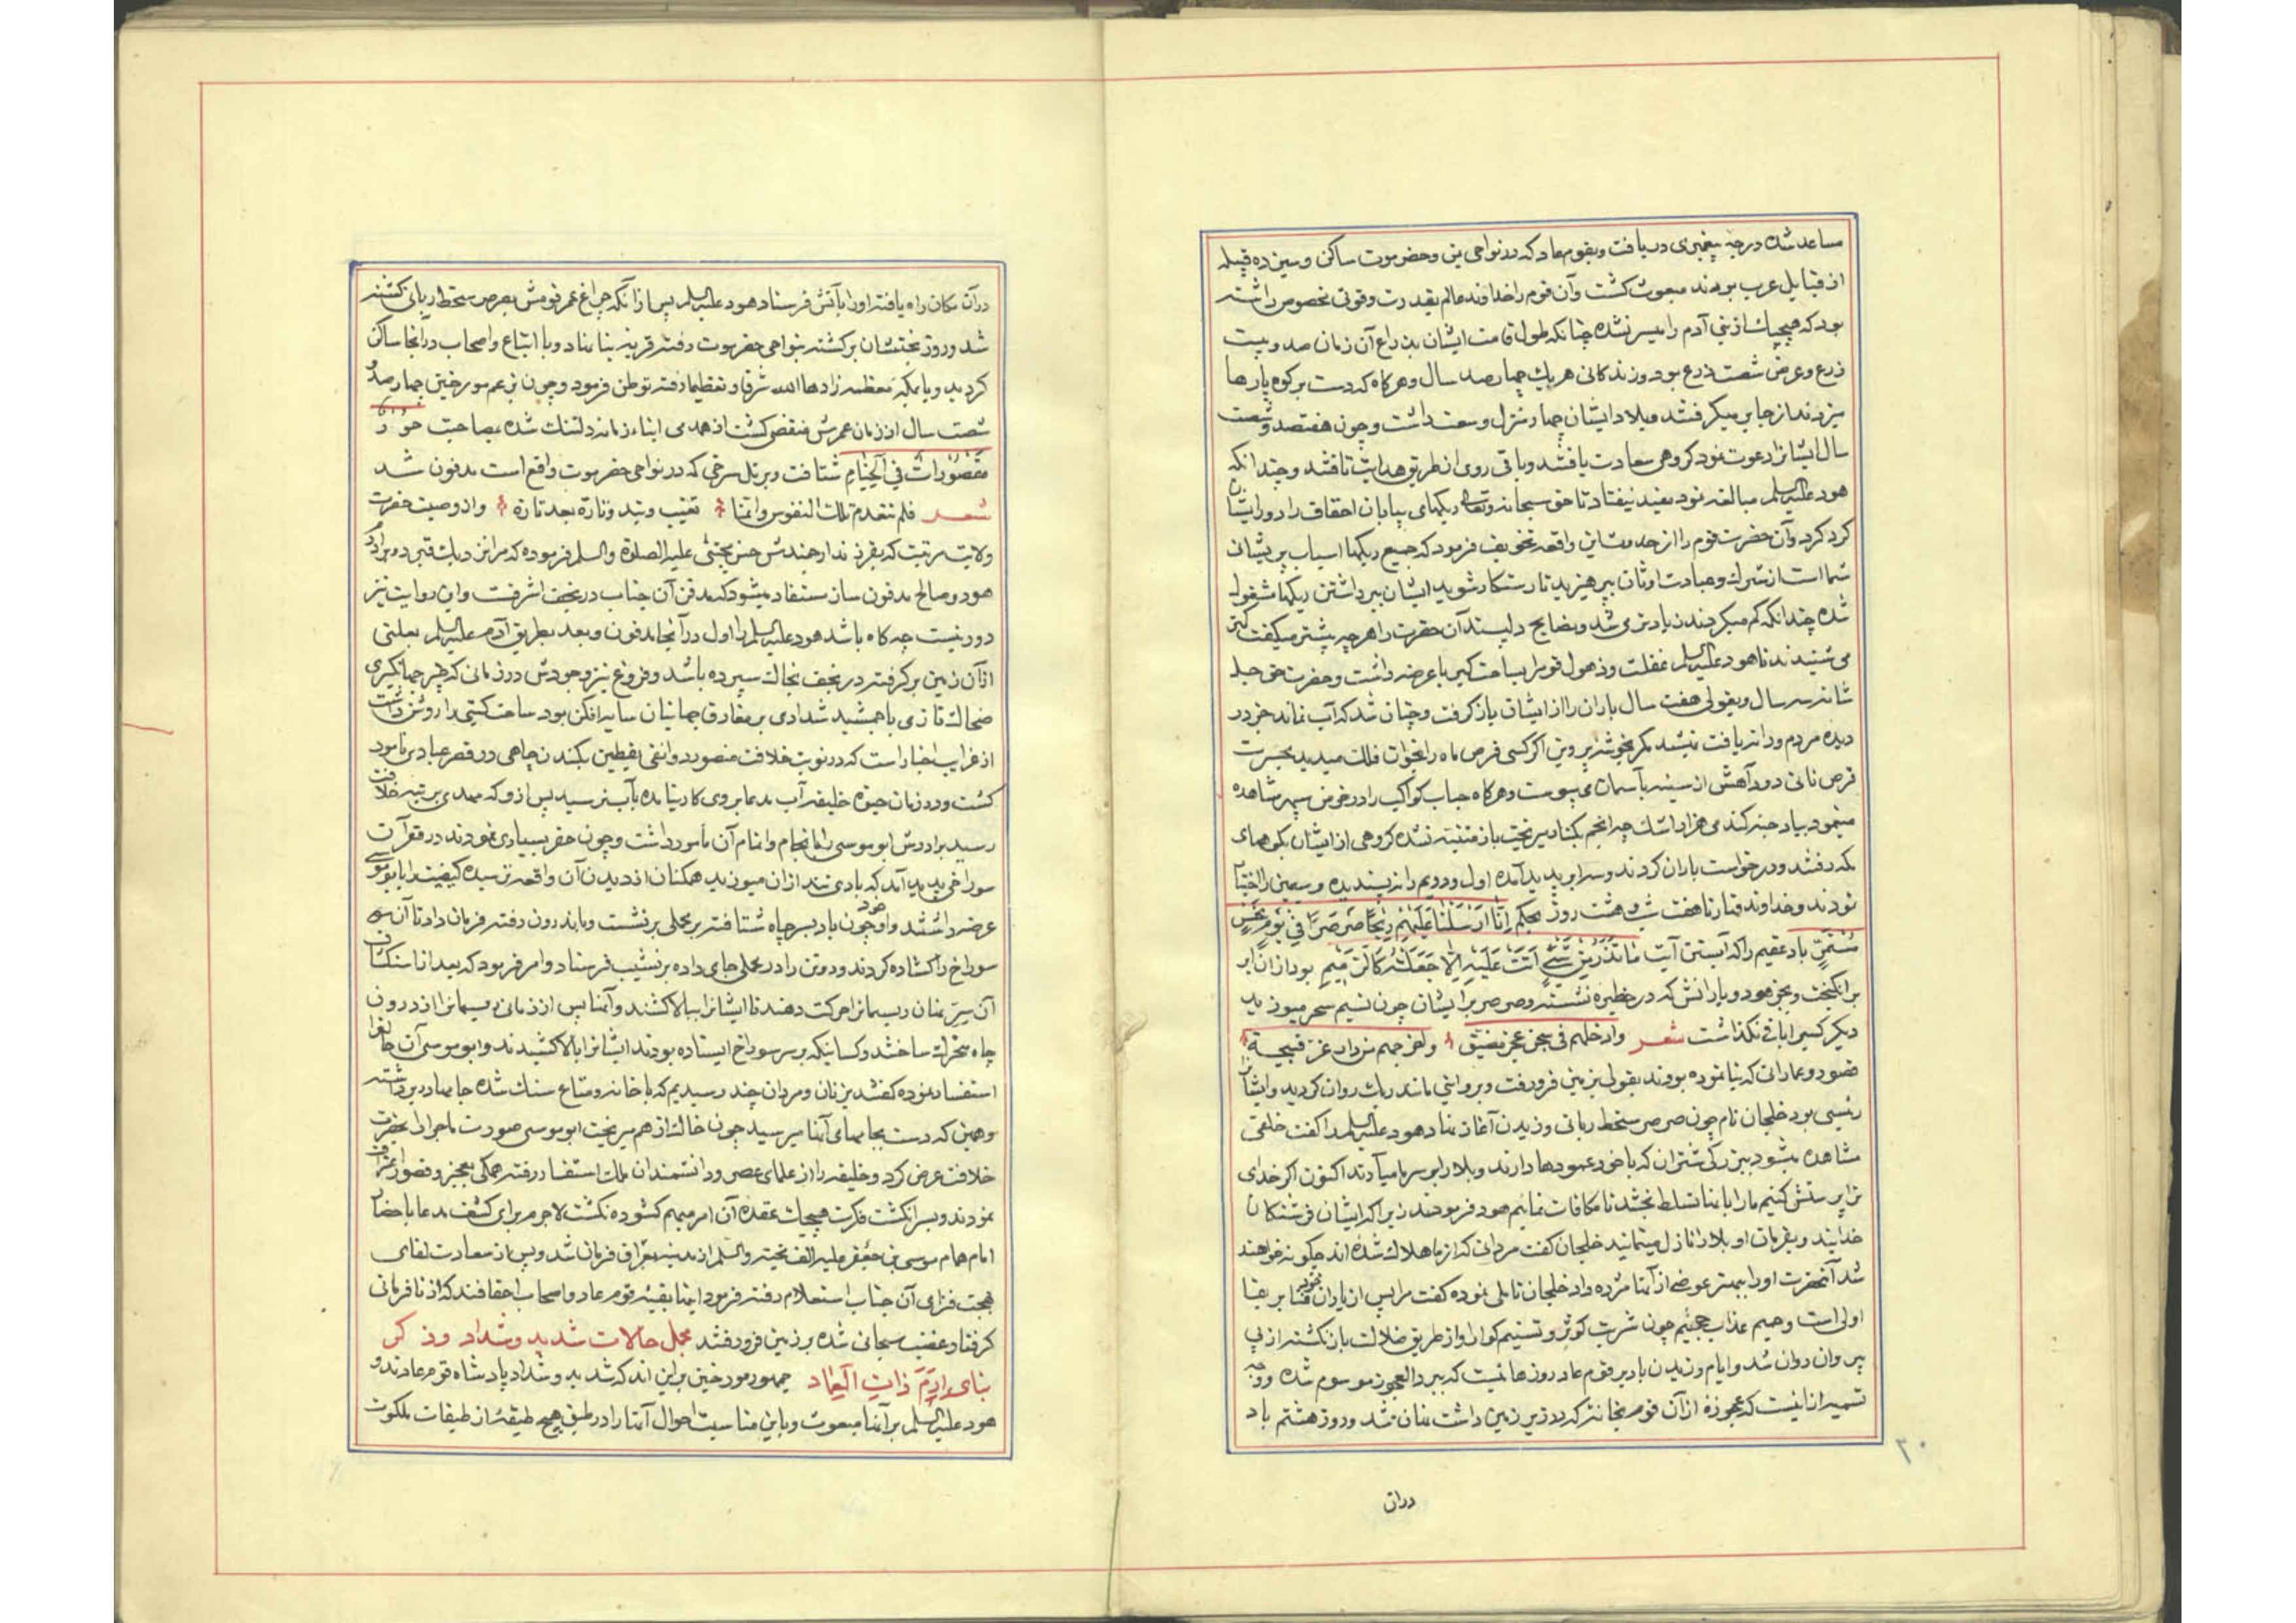 مساعد شده درجهٔ پیغمبری دریافت و بقوم عاد که در نواحی یمن و حضرموت ساکن و سیزده قبیله
از قبایل عرب بودند مبعوث کشت و آن قوم را خداوند عالم بقدرت و قوتی مخصوص داشته
بود که هیچیک از بنی آدم را میسر نشده چنانکه طول قامت ایشان بذراع آن زمان صد و بیست
ذرع و عرض شصت ذرع بود و زندکانی هر یک چهار صد سال و هرکاه که دست بر کوه پارها
میزدند از جای میکرفتند و بلاد ایشان چهار منزل وسعت داشت و چون هفتصد و شصت
سال ایشانرا دعوت نمود کروهی سعادت یافتند و باقی روی از طریق هدایت تافتند و چندانکه
هود علیه السلم مبالغه نمود مفید نیفتاد تا حق سبحانه و تعالی ریکهای بیابان احقاف را در ایشان
کرد کرد و آن حضرت قوم را از حدوث این واقعه تخویف فرمود که جمیع ریکها اسباب پریشانی
شما است از شرک و عبادت اوثان بپرهیزید تا رستکار شوید ایشان ببرداشتن ریکها مشغول
شده چندانکه کم میکردند زیادتر می شد و نصایح دلپسند آن حضرت را هرچه بیشتر میکفت کمتر
می شنیدند تا هود علیه السلم غفلت و ذهول قوم را بساحت کبریا عرضه داشت و حضرت حق جل
شانه سه سال و بقولی هفت سال باران را از ایشان باز کرفت و چنان شد که آب نماند جز در
دیده مردم و دانه یافت نیشد مکر بخوشه پروین اکر کسی قرص ماه را بخوان فلک میدید بحسرت
قرص نانی دود آهش از سینه بآسمان می پیوست و هرکاه حباب کواکب را در حوض سپهر مشاهده
مینمود بیاد حبه کندمی هزار اشک چه انجم بکنار میریخت باز متنبه نشده کروهی از ایشان بکوههای
مکه رفتند و درخواست باران کردند و سه ابر پدید آمده اول و دویم را نپسندیده و سیمین را اختیار
نمودند و خداوند قهار تا هفت شب و هشت روز بحکم اِنّا اَرْسَلْنا عَلَیْهِمْ رِیحًا صَرْصَرًا فِی یَوْمِ نَحْسٍ
مُسْتَمِرٍّ باد عقیم را که آیستن آیت ما تَذَرُ مِنْ شَیْءٍ اَتَتْ عَلَیْهِ اِلّا جَعَلَتْهُ کَالرَّمِیمِ بود از آن ابر
برانکیخت و بجز هود و یارانش که در حظیره نشسته و صرصر بر ایشان چون نسیم سحر میوزید
دیکر کسیرا باقی نکذاشت شعر وادخلهم فی سجن عجز مضیق ولعن جهم من داد عز فسیحة
قصور و عماراتی که بنا نموده بودند بقولی بزمین فرو رفت و بروایتی مانند ریک روان کردید و ایشانرا
رئیسی بود خلجان نام چون صرصر سخط ربانی وزیدن آغاز نهاد هود علیه السلم را کفت خلقی
مشاهده میشود ببزرکی شتران که با خود عمودها دارند و بلا را بر سر ما میآرند اکنون اکر خدای
ترا پرستش کنیم ما را بآنها تسلط بخشد تا مکافات نمائیم هود فرمود نه زیرا که ایشان فرشتکان
خدایند و بفرمان او بلا را نازل مینمایند خلجان کفت مردانی که از ما هلاک شده اند چکونه خواهند
شد آنحضرت او را ببهتر عوضی از آنها مژده داد خلجان تاملی نموده کفت مرا پس از یاران فنا بر بقا
اولی است و حمیم عذاب جحیم چون شربت کوثر و تسنیم کوارا و از طریق ضلالت باز نکشته از پی
پیروان روان شد و ایام وزیدن باد بر قوم عاد روزهائیست که ببرد العجوز موسوم شده و وجه
تسمیه از اینست که عجوزهٔ از آن قوم بخانهٔ که در زیر زمین داشت پنهان شد و روز هشتم باد
دران
۳۰
در آن مکان راه یافته او را بآتش فرستاد هود علیه السلم پس از آنکه چراغ عمر قومش بصرصر سخط ربانی کشته
شد و روز بختشان برکشته بنواحی حضرموت رفته قریهٔ بنا نهاد و با اتباع و اصحاب در آنجا ساکن
کردید و یا بمکه معظمه زادها الله شرفا و تعظیما رفته توطن فرمود و چون بزعم مورخین چهار صد و
شصت سال از زمان عمرش منقضی کشت از همدمی ابناء زمانه دلتنک شده بمصاحبت حور
مقصورات فی الخیام شتافت و بر تل سرخی که در نواحی حضرموت واقع است مدفون شد
شعر فلم تتقدم تلک النفوس وانها تغیب وتبدو تارة بعد تارة و از وصیت حضرت
ولایت مرتبت که بفرزند ارجمندش حسن مجتبی علیه الصلوة والسلم فرموده که مرا نزدیک قبر دو برادرم
هود و صالح مدفون ساز مستفاد میشود که مدفن آن جناب در نجف اشرفست و این روایت نیز
دور نیست چه کاه باشد هود علیه السلم را اول در آنجا مدفون و بعد بطریق آدم علیه السلم بعلتی
از آن زمین بر کرفته در نجف بخاک سپرده باشد و فروغ نیر وجودش در زمانی که چتر جهانکیری
ضحاک تازی یا جمشید شدادی بر مفارق جهانیان سایه افکن بود ساحت کیتی را روشن داشت
از غرایب اخبار است که در نوبت خلافت منصور دوانقی یقطین بکندن چاهی در قصر عبادی مامور
کشت و در زمان حیوة خلیفه آب مدعا بروی کار نیامده بآب نرسید پس از او که مهدی بر تبه خلافت
رسید برادرش ابوموسی را بانجام و اتمام آن مأمور داشت و چون حفر بسیاری نمودند در قعر آن
سوراخی پدید آمد که بادی تند از آن میوزید همکنان از دیدن آن واقعه ترسیده کیفیت را بابوموسی
عرضه داشتند و او خود چون باد بسر چاه شتافته بر محلی برنشست و باندرون رفته فرمان داد تا آن
سوراخ را کشاده کردند و دو تن را در محملی جای داده بنشیب فرستاد و امر فرمود که بعد از استکشاف
آن سر پنهان ریسمانرا حرکت دهند تا ایشانرا ببالا کشند و آنها پس از زمانی ریسمانرا از درون
چاه متحرک ساختند و کسانیکه بر سر سوراخ ایستاده بودند ایشانرا بالا کشیدند و ابوموسی آن حال را
استفسار نموده کفتند بزنان و مردان چند رسیدیم که با خانه و متاع سنک شده جامها در بر داشته
و همین که دست بجامهای آنها میرسید چون خاک از هم میریخت ابوموسی صورت ماجرا را بحضرت
خلافت عرض کرد و خلیفه را از علمای عصر و دانشمندان ملک استفسار رفته همکی بعجز و قصور اعتراف
نمودند و بسرانکشت فکرت هیچیک عقده آن امر مبهم کشوده نکشت لاجرم برای کشف مدعا باحضار
امام همام موسی بن جعفر علیه الف تحیة والسلم از مدینه بعراق فرمان شد و پس از سعادت لقای
بهجت فزای آن جناب استعلام رفته فرمود اینها بقیهٔ قوم عاد و اصحاب احقافند که از نافرمانی
کرفتار غضب سبحانی شده بر زمین فرو رفتند مجمل حالات شدید و شداد و ذکر
بنای اِرَمَ ذاتِ العِماد جمهور مورخین براین اند که شدید و شداد پادشاه قوم عادند و
هود علیه السلم بر آنها مبعوث و باین مناسبت احوال آنها را در طبق هیچ طبقهٔ از طبقات ملکوت